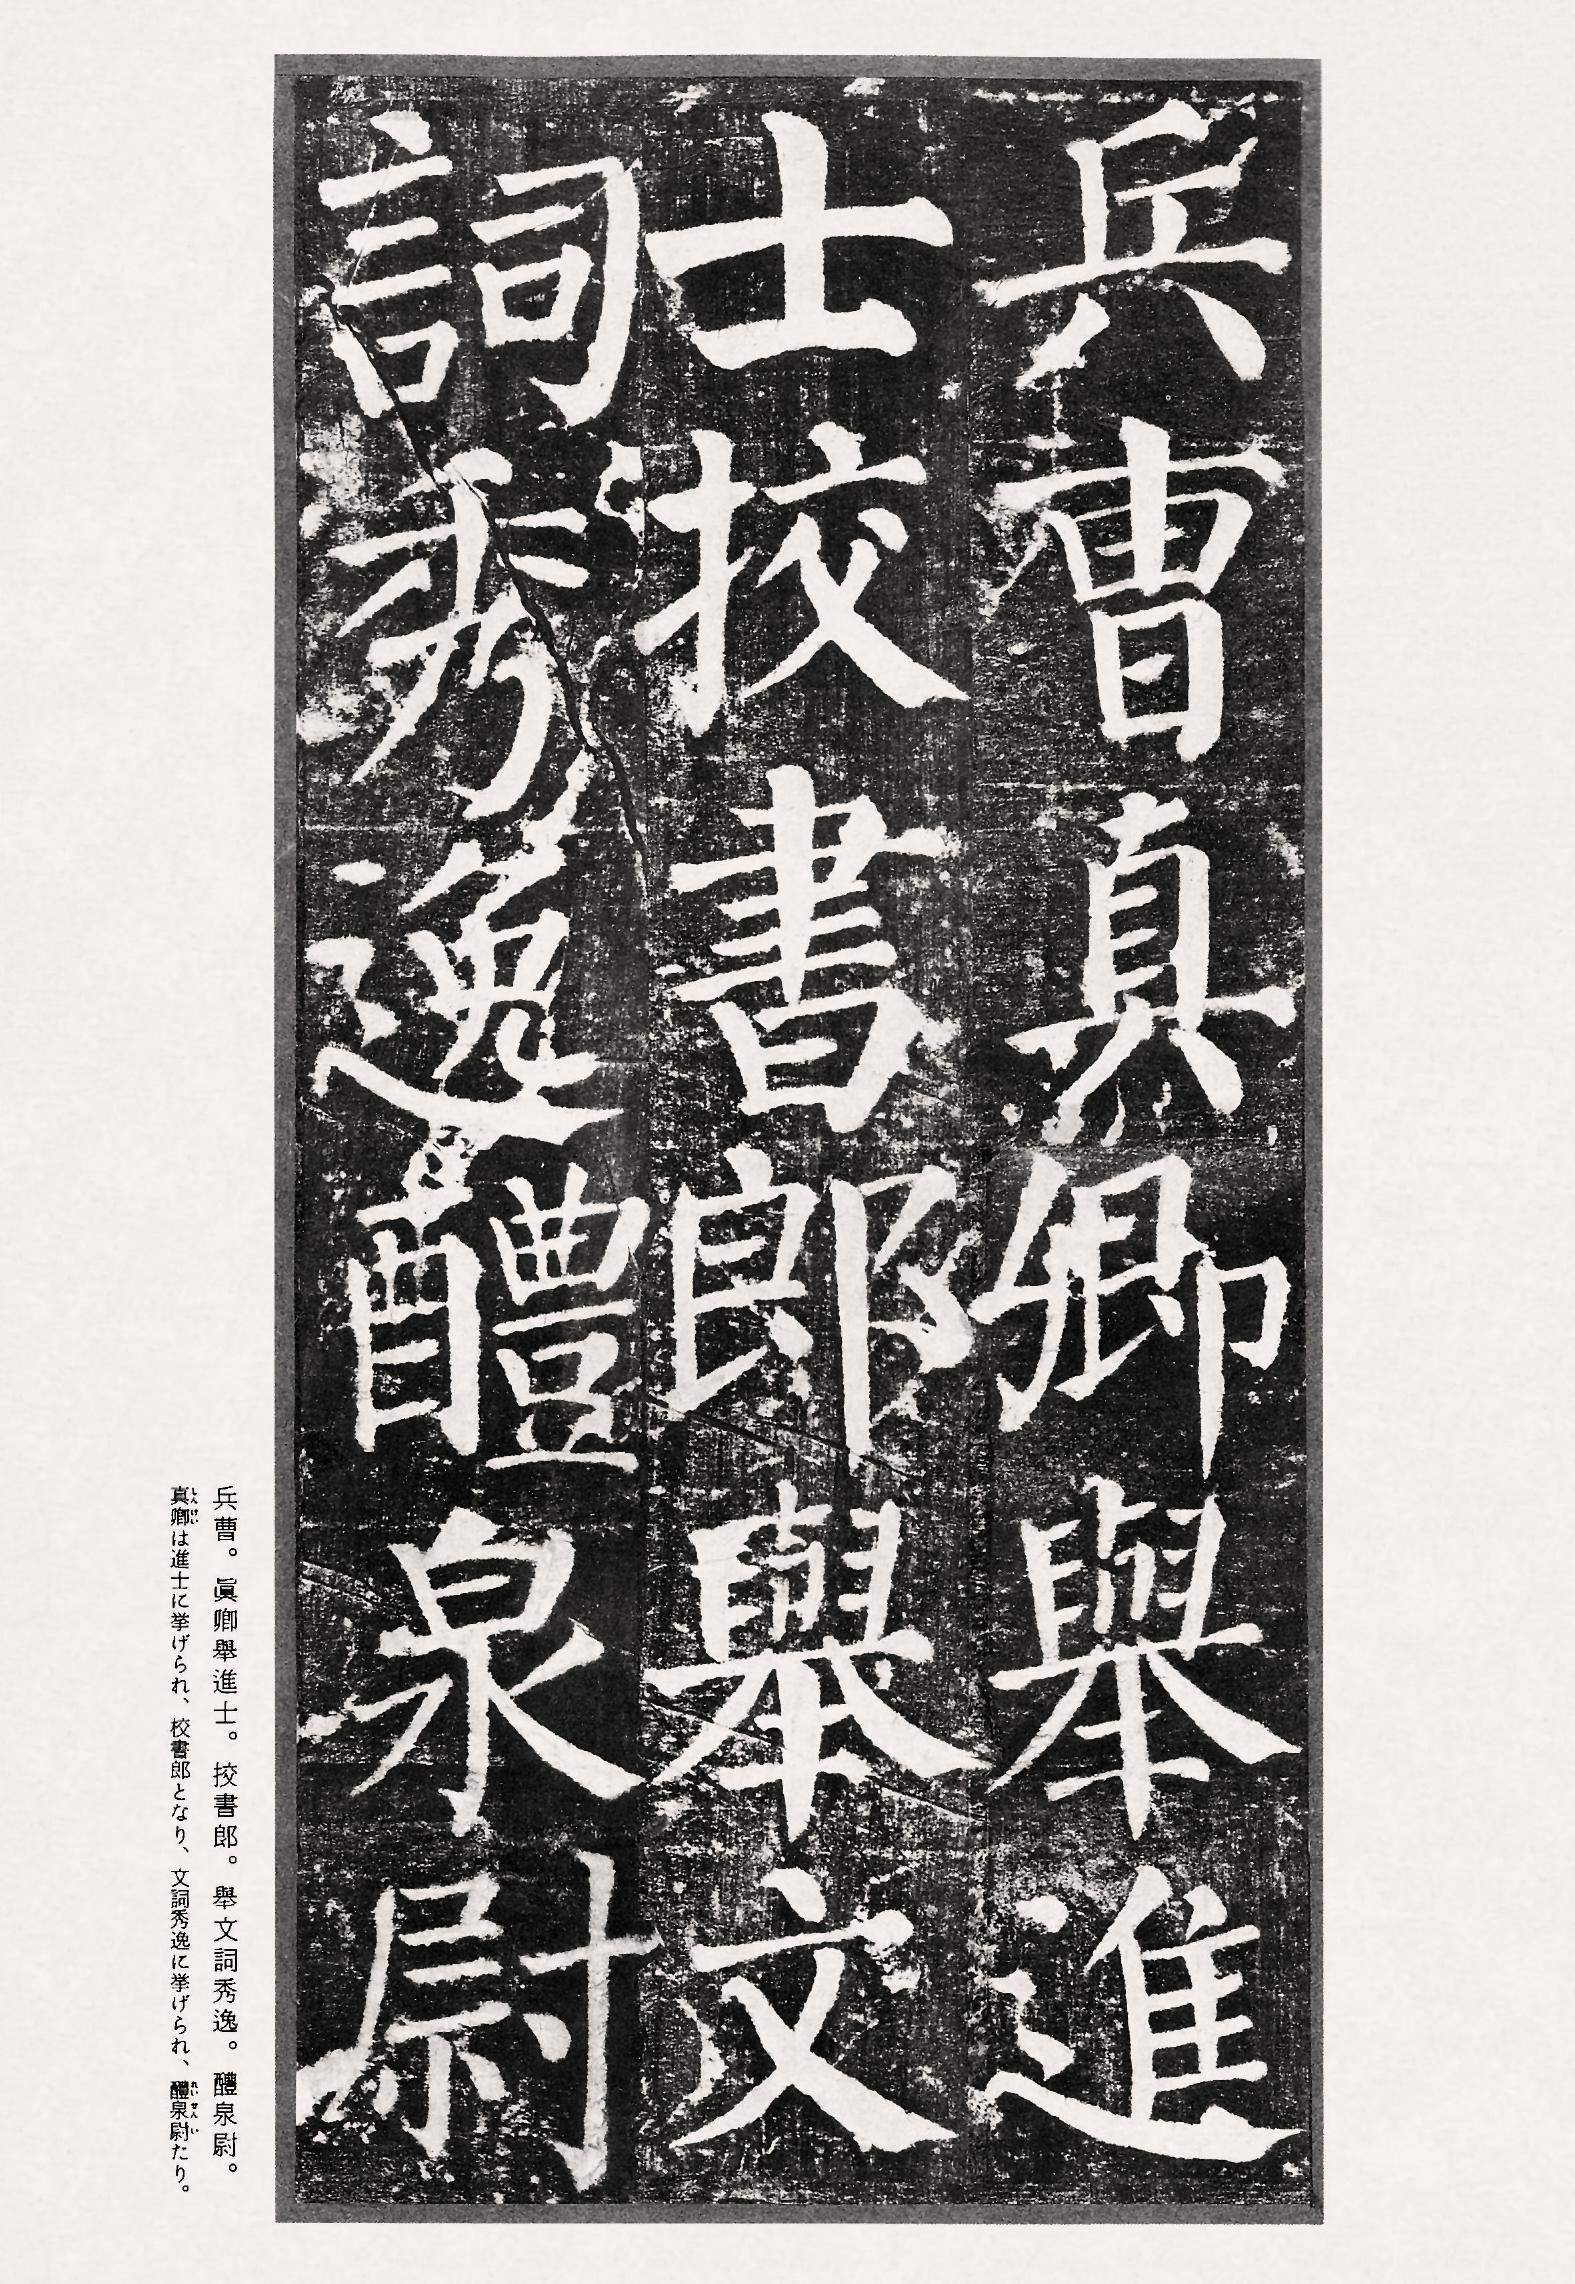 兵曹真卿舉進
士挍書郎舉文
詞秀逸醴泉尉
兵曹。眞卿舉進士。挍書郎。舉文詞秀逸。醴泉尉。
真卿は進士に挙げられ、校書郎となり、文詞秀逸に挙げられ、醴泉尉たり。